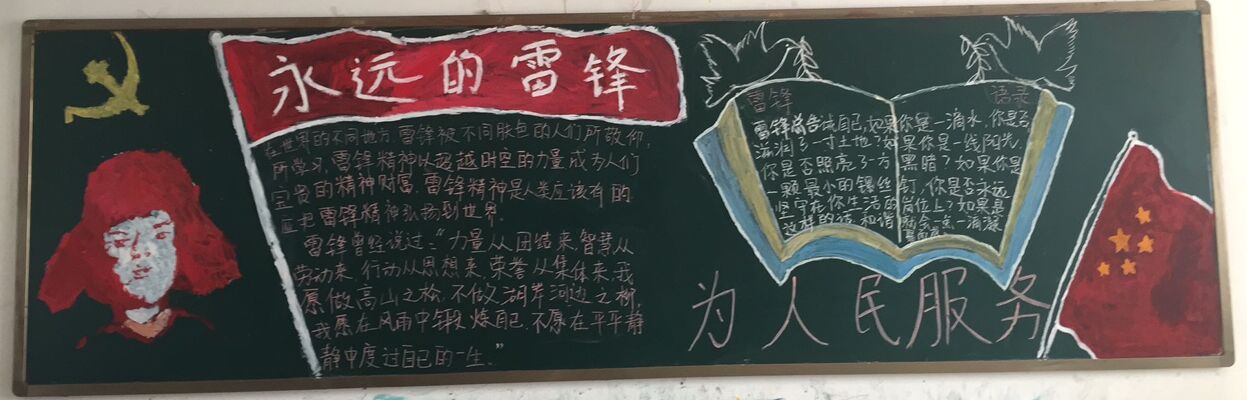 永远的雷锋
在世界的不同地方,雷锋被不同肤色的人们所敬仰,
所学习,雷锋精神以超越时空的力量,成为人们
宝贵的精神财富,雷锋精神是人类应该有的
应把雷锋精神弘扬到世界。
雷锋曾经说过:“力量从团结来,智慧从
劳动来,行动从思想来,荣誉从集体来,我
愿做高山之松,不做湖岸河边之柳,
我愿在风雨中锻炼自己,不愿在平平静
静中度过自己的一生。”
雷锋
语录
雷锋曾告诫自己,如果你是一滴水,你是否
滋润了一寸土地?如果你是一线阳光,
你是否照亮了一方黑暗?如果你是
一颗最小的螺丝钉,你是否永远
坚守在你生活的岗位上?如果是
这样的话,和谐
一点一滴凝
为人民服务